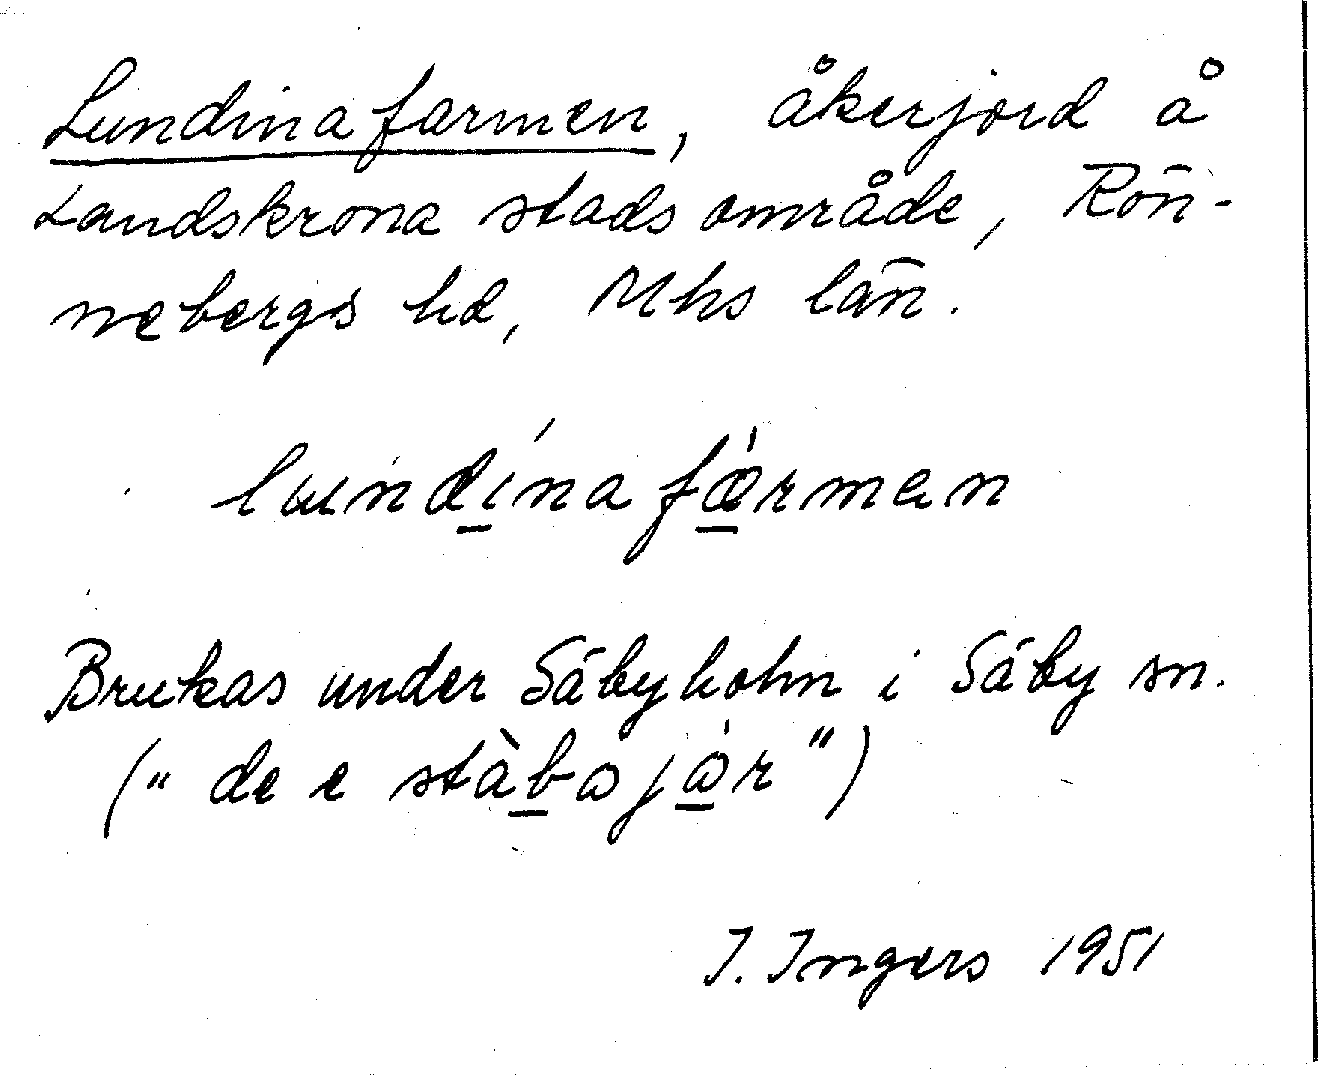 Lundinafarmen, åkerjord å
Landskrona stadsområde, Rön-
nebergs hd, Mhs län.
lundínafárman
Brukas under Säbyholm i Säby sn.
("de e stàbajór")
I. Ingers 1951